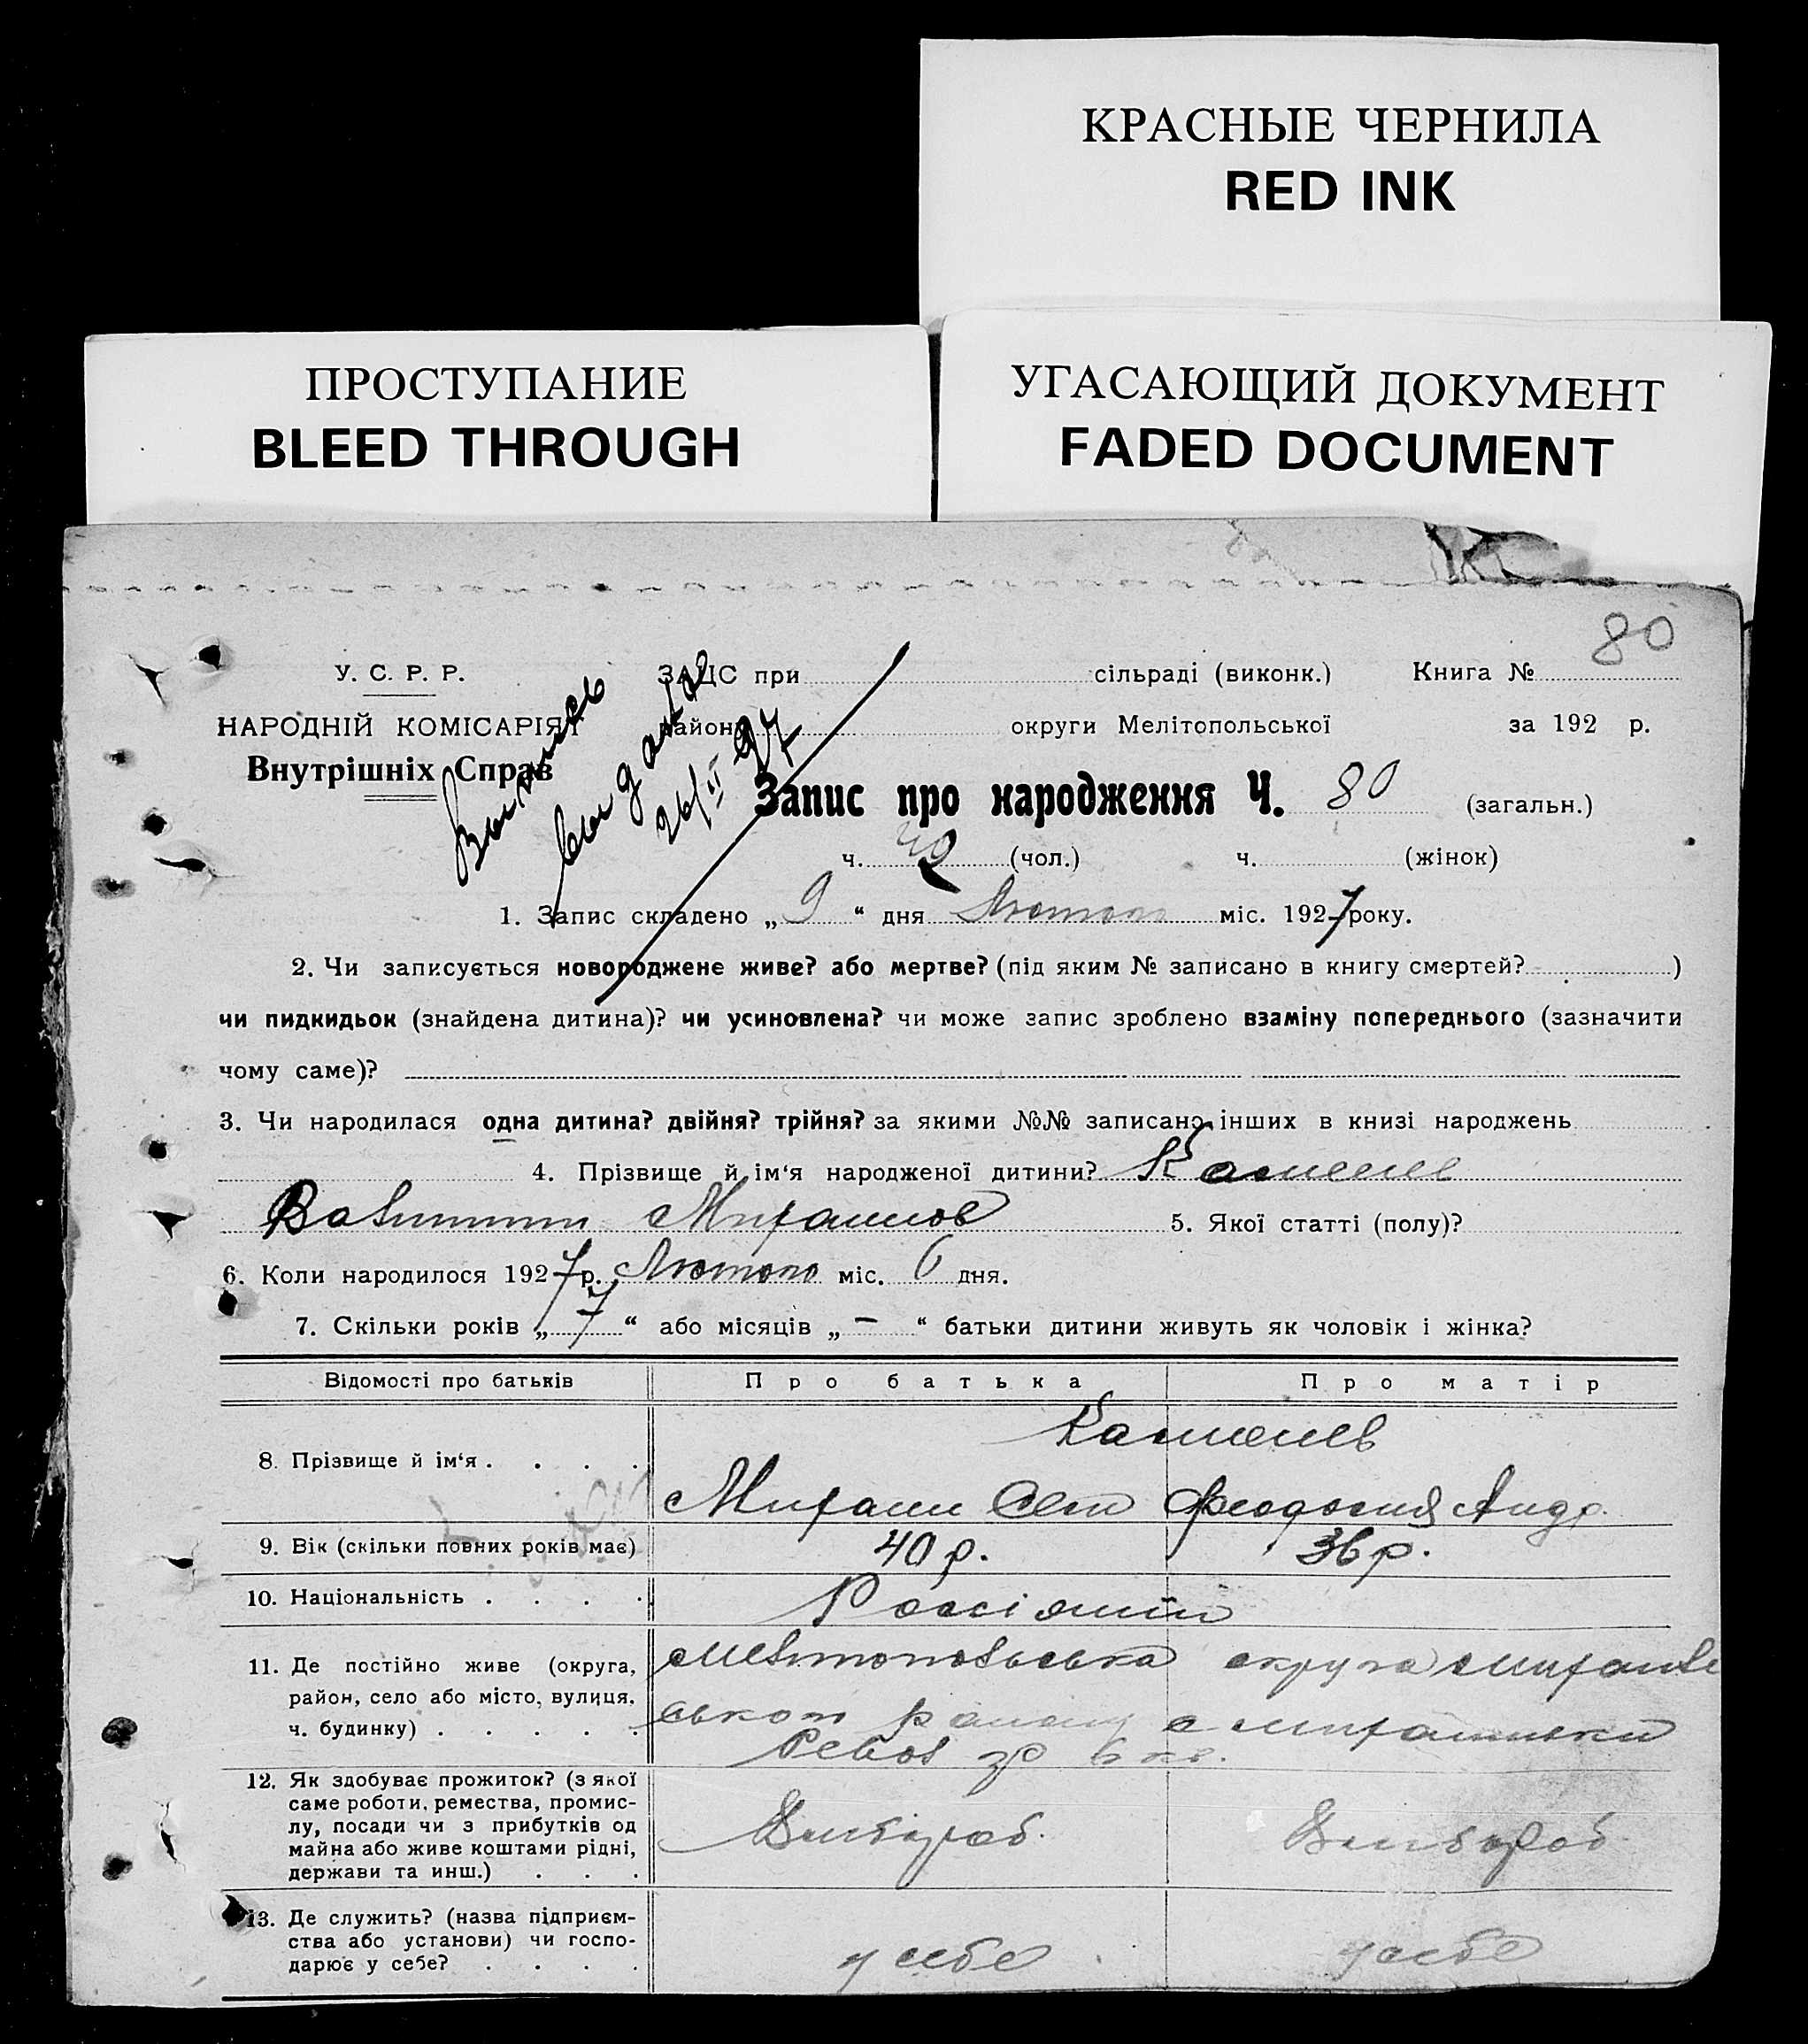 КРАСНЫЕ ЧЕРНИЛА
RED INK
ПРОСТУПАНИЕ
BLEED THROUGH
УГАСАЮЩИЙ ДОКУМЕНТ
FADED DOCUMENT
80
У. С. Р. Р.
ЗАЦС при сільраді (виконк.) Книга №
НАРОДНІЙ КОМІСАРІЯТ
район округи Мелітопольської за 192 р.
Внутрішніх Справ
Выпись
выдана
26/II 27
Запис про народження Ч. 80 (загальн.)
ч. 40 (чол.) ч. (жінок)
1. Запис складено „ 9 “ дня Лютого міс. 1927 року.
2. Чи записується новороджене живе? або мертве? (під яким № записано в книгу смертей? )
чи пидкидьок (знайдена дитина)? чи усиновлена? чи може запис зроблено взаміну попереднього (зазначити
чому саме)?
3. Чи народилася одна дитина? двійня? трійня? за якими №№ записано інших в книзі народжень
4. Прізвище й ім‘я народженої дитини?
5. Якої статті (полу)?
6. Коли народилося 1927 р. Лютого міс. 6 дня.
7. Скільки років „ 7 “ або місяців „ — “ батьки дитини живуть як чоловік і жінка?
Відомості про батьків Про батька Про матір
8. Прізвище й ім‘я . . . .
Феодосия Андр.
9. Вік (скільки повних років має) 40 р. 36 р.
10. Національність . . . . Россіяни
11. Де постійно живе (округа, Мелітопольська округа
район, село або місто, вулиця,
ч. будинку) . . . . .
12. Як здобуває прожиток? (з якої
саме роботи, ремества, промис-
лу, посади чи з прибутків од
майна або живе коштами рідні,
держави та инш.) . . .
13. Де служить? (назва підприєм-
ства або установи) чи госпо-
дарює у себе? . . . . у себе у себе